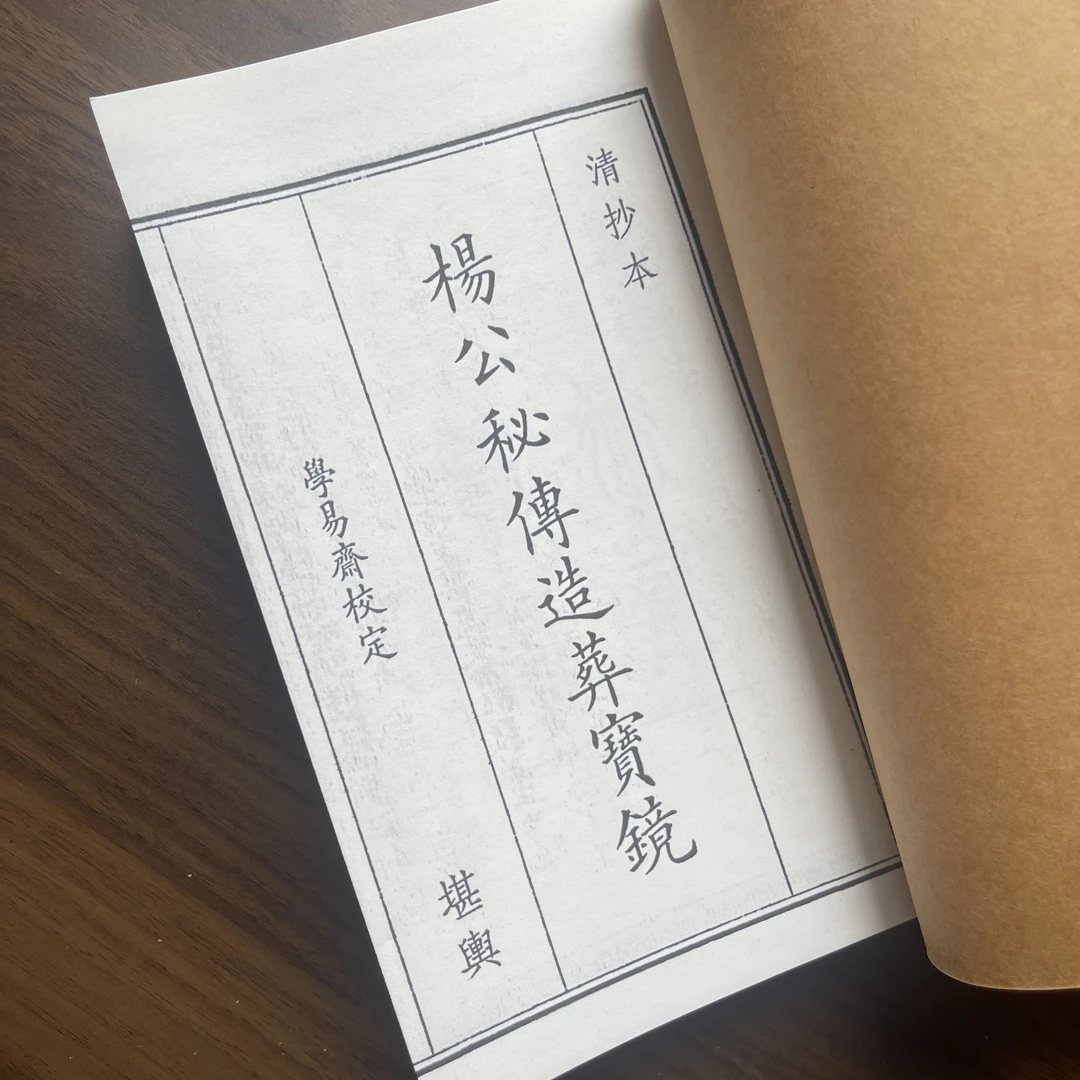 清抄本
楊公秘傳造葬寶鏡
學易齋校定
堪輿